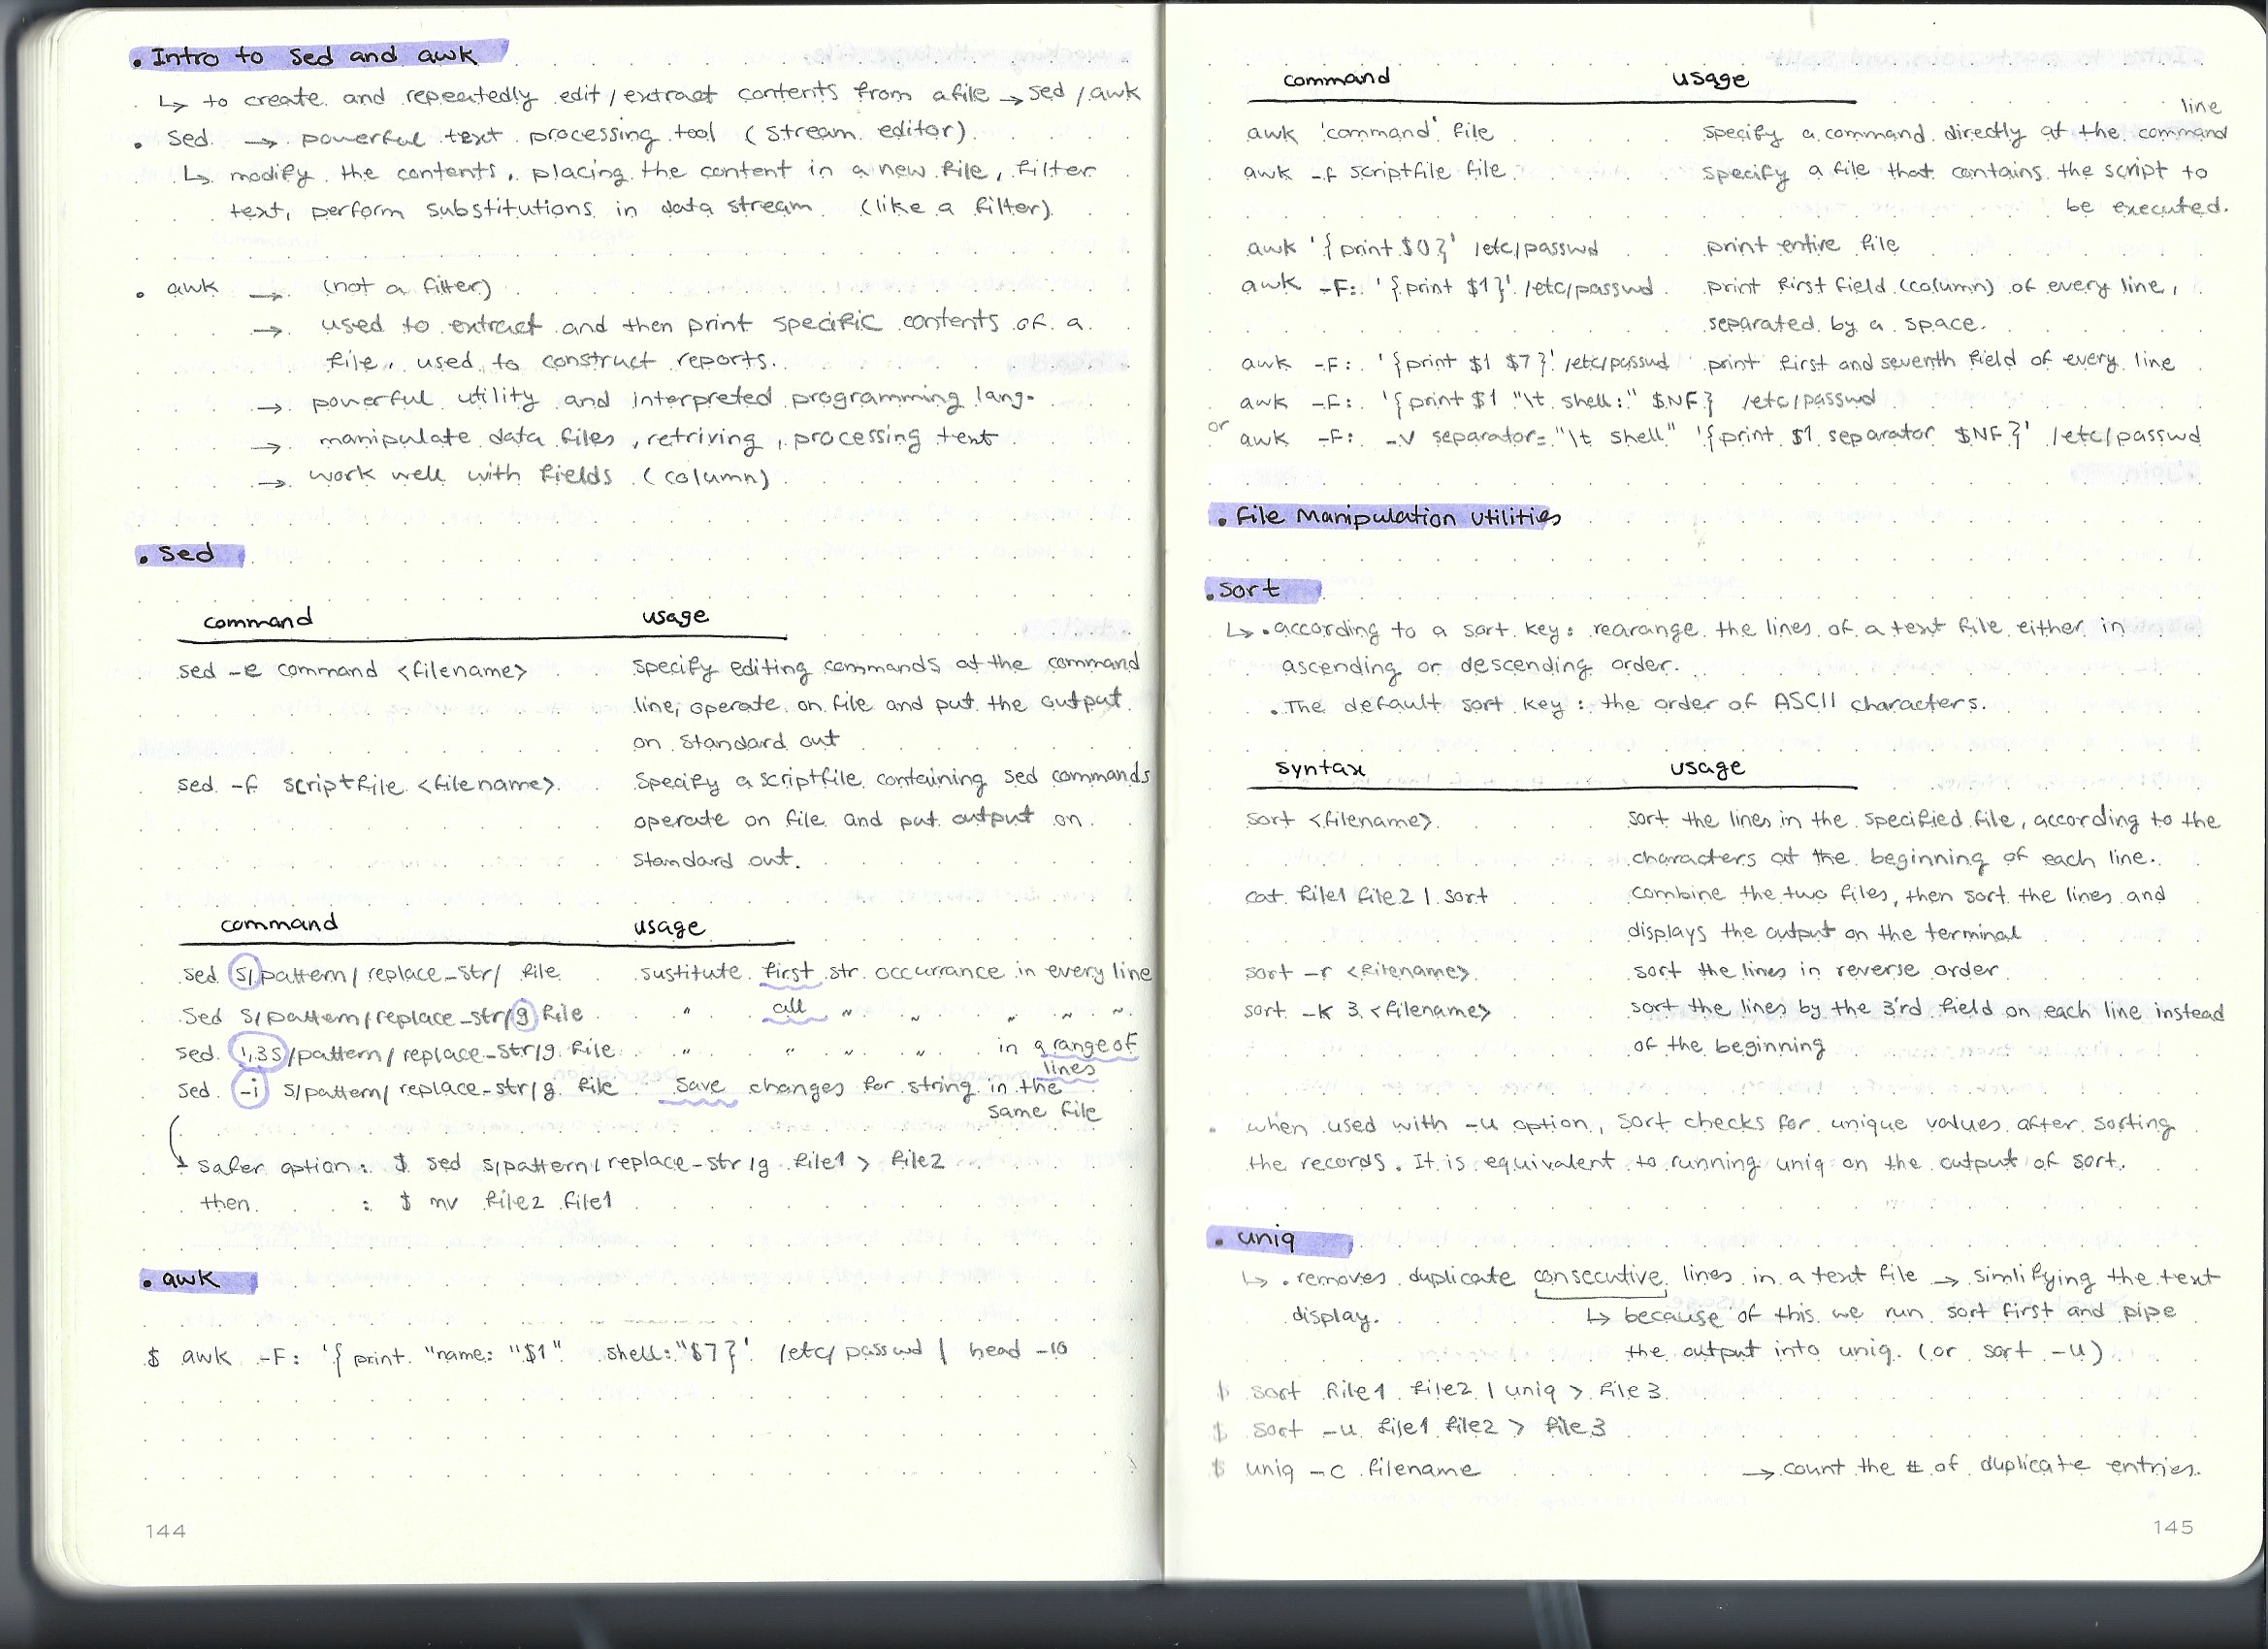 . Intro to sed and awk
↳ to create and repeatedly edit/extract contents from a file → sed / awk
. sed → powerful text processing tool (stream editor)
↳ modify the contents, placing the content in a new file, filter
text, perform substitutions in data stream (like a filter)
. awk → (not a filter)
→ used to extract and then print specific contents of a
file, used to construct reports.
→ powerful utility and interpreted programming lang.
→ manipulate data files, retriving, processing text
→ work well with fields (column)
. sed
command usage
sed -e command <filename> specify editing commands at the command
line, operate on file and put the output
on standard out
sed -f scriptfile <filename> specify a scriptfile containing sed commands
operate on file and put output on
standard out.
command usage
sed s/pattern/replace_str/ file sustitute first str occurrance in every line
sed s/pattern/replace_str/g file " all " " " " "
sed 1,3s/pattern/replace_str/g file " " " " in a range of
lines
sed -i s/pattern/replace_str/g file save changes for string in the
same file
safer option : $ sed s/pattern/replace_str/g file1 > file2
then : $ mv file2 file1
. awk
$ awk -F: '{ print "name: "$1" shell:"$7}' /etc/passwd | head -10
144
command usage
line
awk 'command' file specify a command directly at the command
awk -f scriptfile file specify a file that contains the script to
be executed.
awk '{print $0}' /etc/passwd print entire file
awk -F: '{print $1}' /etc/passwd print first field (column) of every line,
separated by a space.
awk -F: '{print $1 $7}' /etc/passwd print first and seventh field of every line
awk -F: '{print $1 "\t shell:" $NF} /etc/passwd
or awk -F: -v separator="\t shell" '{print $1 separator $NF}' /etc/passwd
. File Manipulation Utilities
. sort
↳ . according to a sort key: rearange the lines of a text file either in
ascending or descending order.
. The default sort key : the order of ASCII characters.
syntax usage
sort <filename> sort the lines in the specified file, according to the
characters at the beginning of each line.
cat file1 file2 | sort combine the two files, then sort the lines and
displays the output on the terminal
sort -r <filename> sort the lines in reverse order
sort -k 3 <filename> sort the lines by the 3'rd field on each line instead
of the beginning
. when used with -u option, sort checks for unique values after sorting
the records. It is equivalent to running uniq on the output of sort.
. uniq
↳ . removes duplicate consecutive lines in a text file → simlifying the text
display. ↳ because of this we run sort first and pipe
the output into uniq. (or sort -u)
$ sort file1 file2 | uniq > file3
$ sort -u file1 file2 > file3
$ uniq -c filename → count the # of duplicate entries.
145